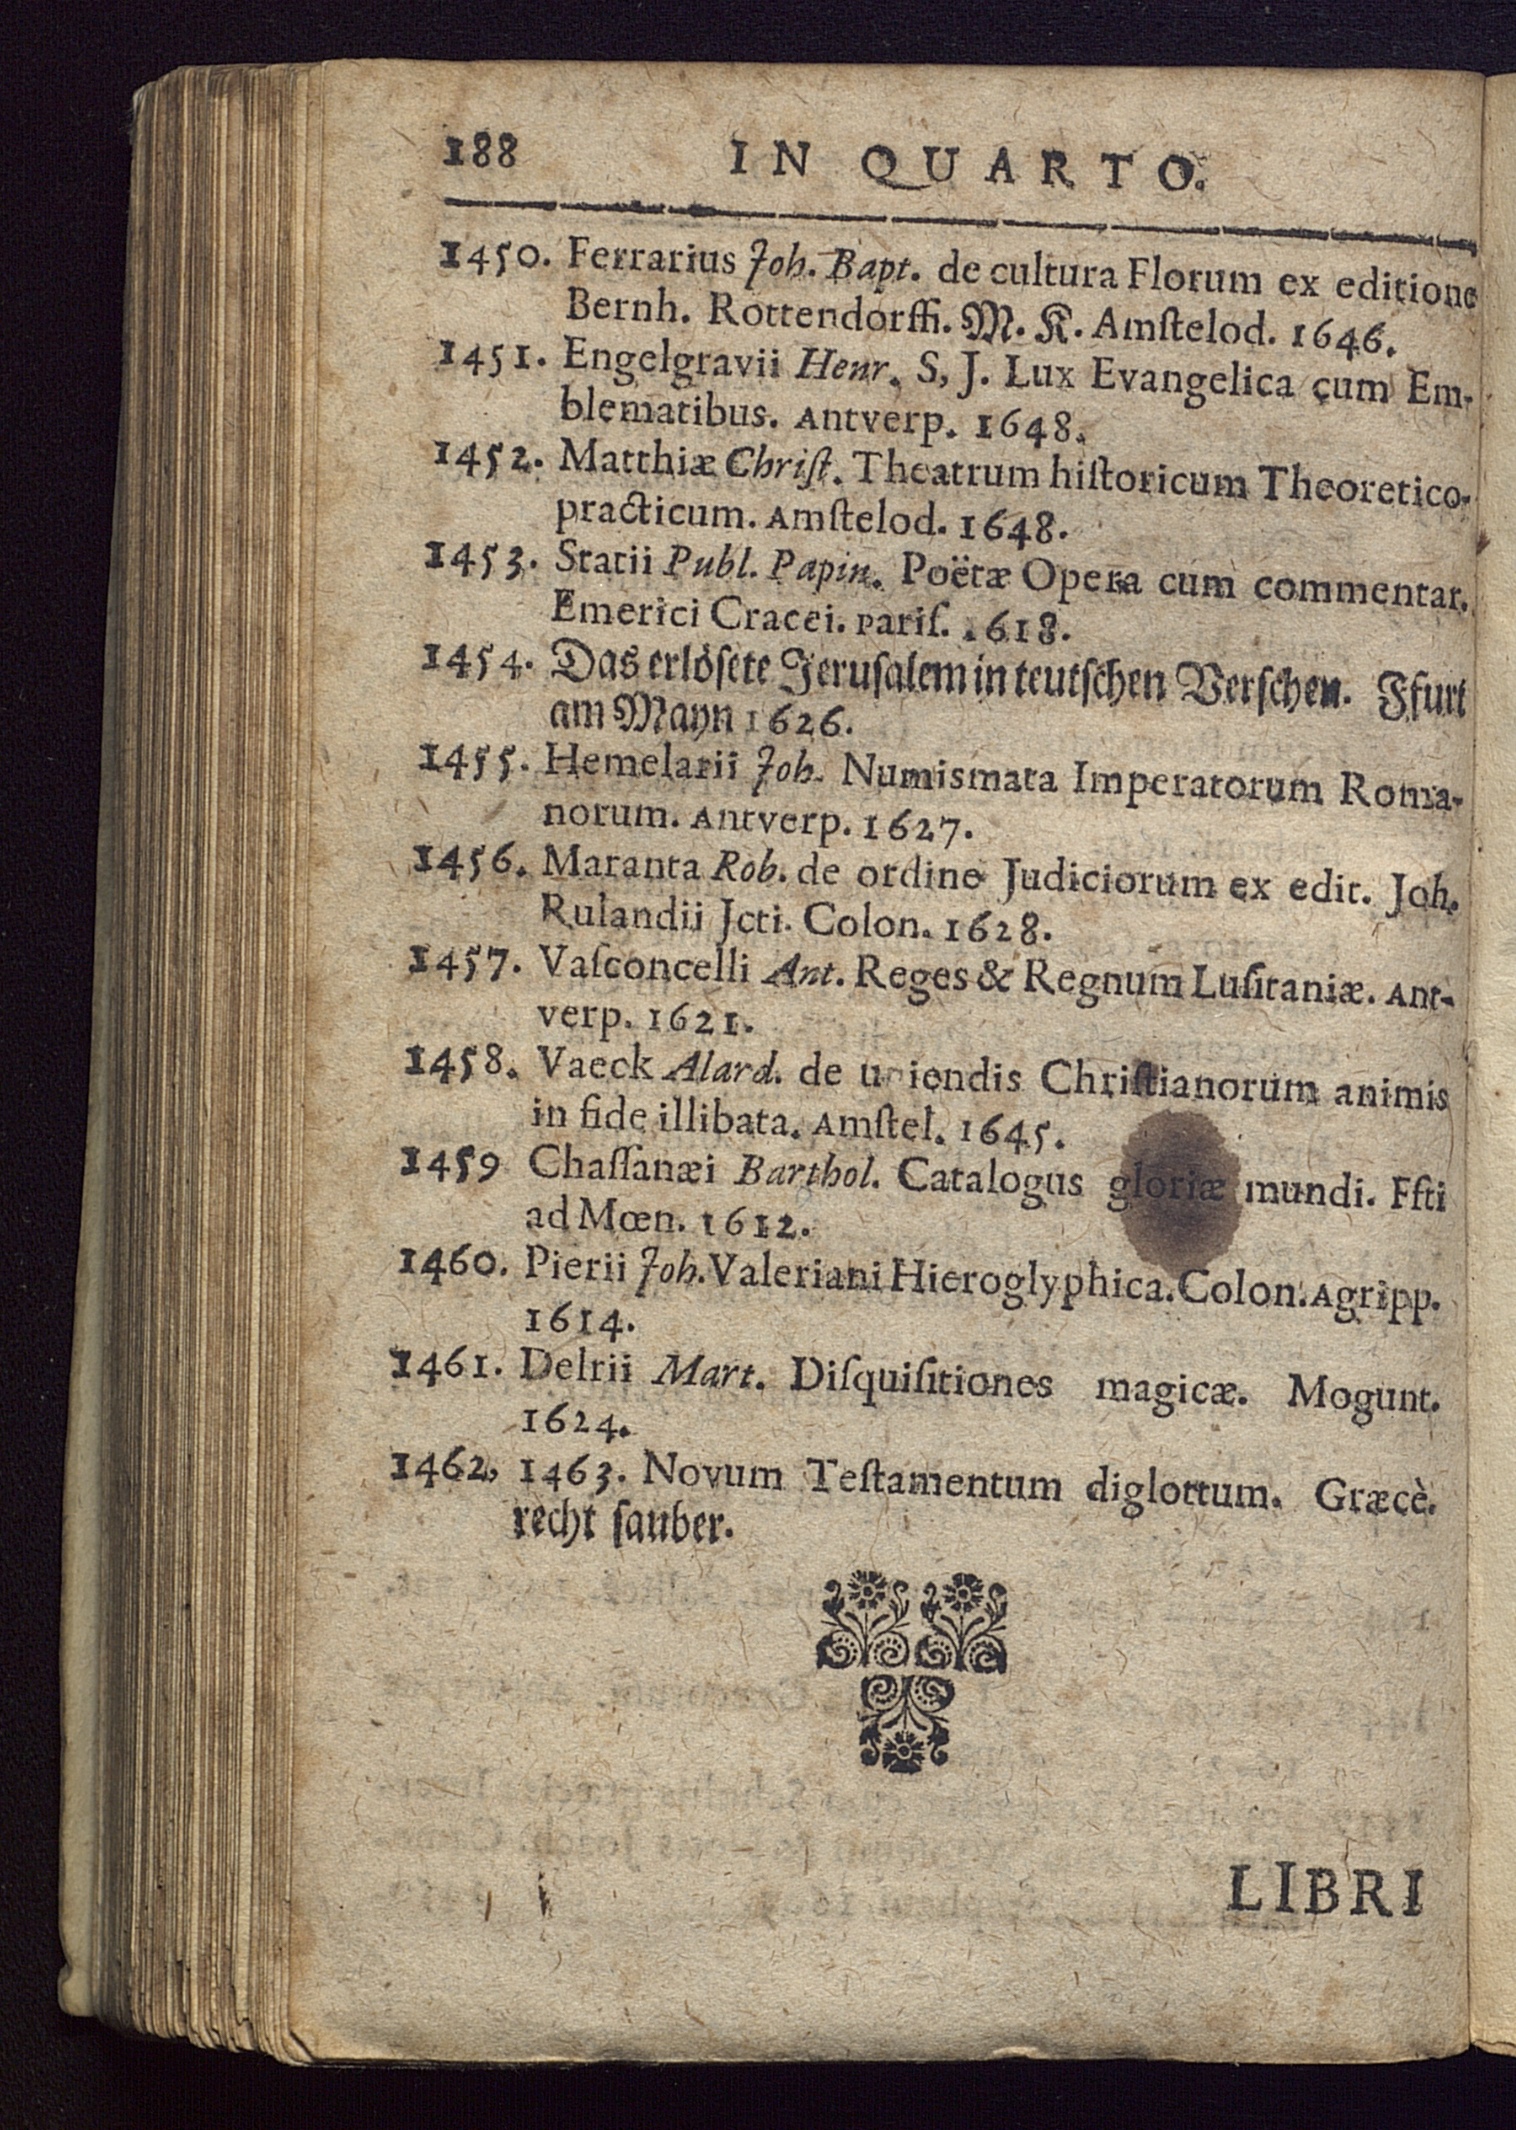 188 IN QUARTO.
1450. Ferrarius Joh. Bapt. de cultura Florum ex editione
Bernh. Rottendorffi. M. K. Amſtelod. 1646.
1451. Engelgravii Henr. S, J. Lux Evangelica cum Em-
blematibus. Antverp. 1648.
1452. Matthiæ Chriſt. Theatrum hiſtoricum Theoretico-
practicum. Amſtelod. 1648.
1453. Statii Publ. Papin. Poëtæ Opera cum commentar.
Emerici Cracei. Pariſ. 1618.
1454. Das erlöſete Jeruſalem in teutſchen Verſchen. Ffurt
am Mayn 1626.
1455. Hemelarii Joh. Numismata Imperatorum Roma-
norum. Antverp. 1627.
1456. Maranta Rob. de ordine Judiciorum ex edit. Joh.
Rulandii Jcti. Colon. 1628.
1457. Vaſconcelli Ant. Reges & Regnum Luſitaniæ. Ant-
verp. 1621.
1458. Vaeck Alard. de uniendis Chriſtianorum animis
in fide illibata. Amſtel. 1645.
1459 Chaſſanæi Barthol. Catalogus gloriæ mundi. Ffti
ad Mœn. 1612.
1460. Pierii Joh. Valeriani Hieroglyphica. Colon. Agripp.
1614.
1461. Delrii Mart. Diſquiſitiones magicæ. Mogunt.
1624.
1462, 1463. Novum Teſtamentum diglottum. Græcè.
recht ſauber.
LIBRI